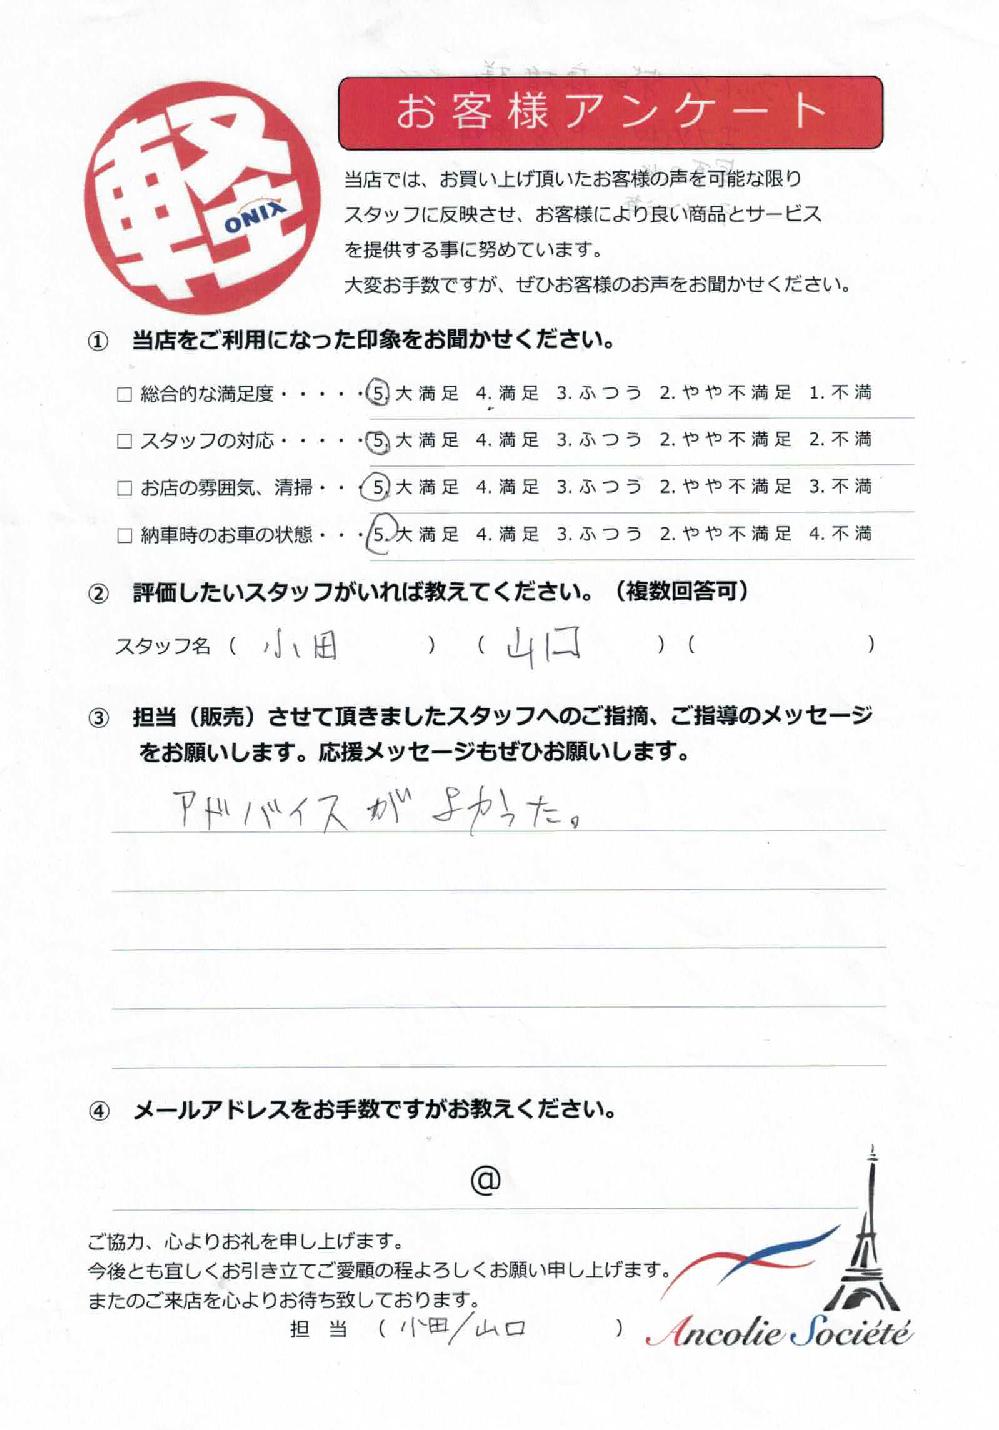 軽
ONIX
お客様アンケート
当店では、お買い上げ頂いたお客様の声を可能な限り
スタッフに反映させ、お客様により良い商品とサービス
を提供する事に努めています。
大変お手数ですが、ぜひお客様のお声をお聞かせください。
① 当店をご利用になった印象をお聞かせください。
□ 総合的な満足度・・・・・5.大満足 4.満足 3.ふつう 2.やや不満足 1.不満
□ スタッフの対応・・・・・5.大満足 4.満足 3.ふつう 2.やや不満足 2.不満
□ お店の雰囲気、清掃・・・5.大満足 4.満足 3.ふつう 2.やや不満足 3.不満
□ 納車時のお車の状態・・・5.大満足 4.満足 3.ふつう 2.やや不満足 4.不満
② 評価したいスタッフがいれば教えてください。（複数回答可）
スタッフ名（ 小田 ）（ 山口 ）（ ）
③ 担当（販売）させて頂きましたスタッフへのご指摘、ご指導のメッセージ
をお願いします。応援メッセージもぜひお願いします。
アドバイスがよかった。
④ メールアドレスをお手数ですがお教えください。
@
ご協力、心よりお礼を申し上げます。
今後とも宜しくお引き立てご愛顧の程よろしくお願い申し上げます。
またのご来店を心よりお待ち致しております。
担当（ 小田/山口 ）
Ancolie Société